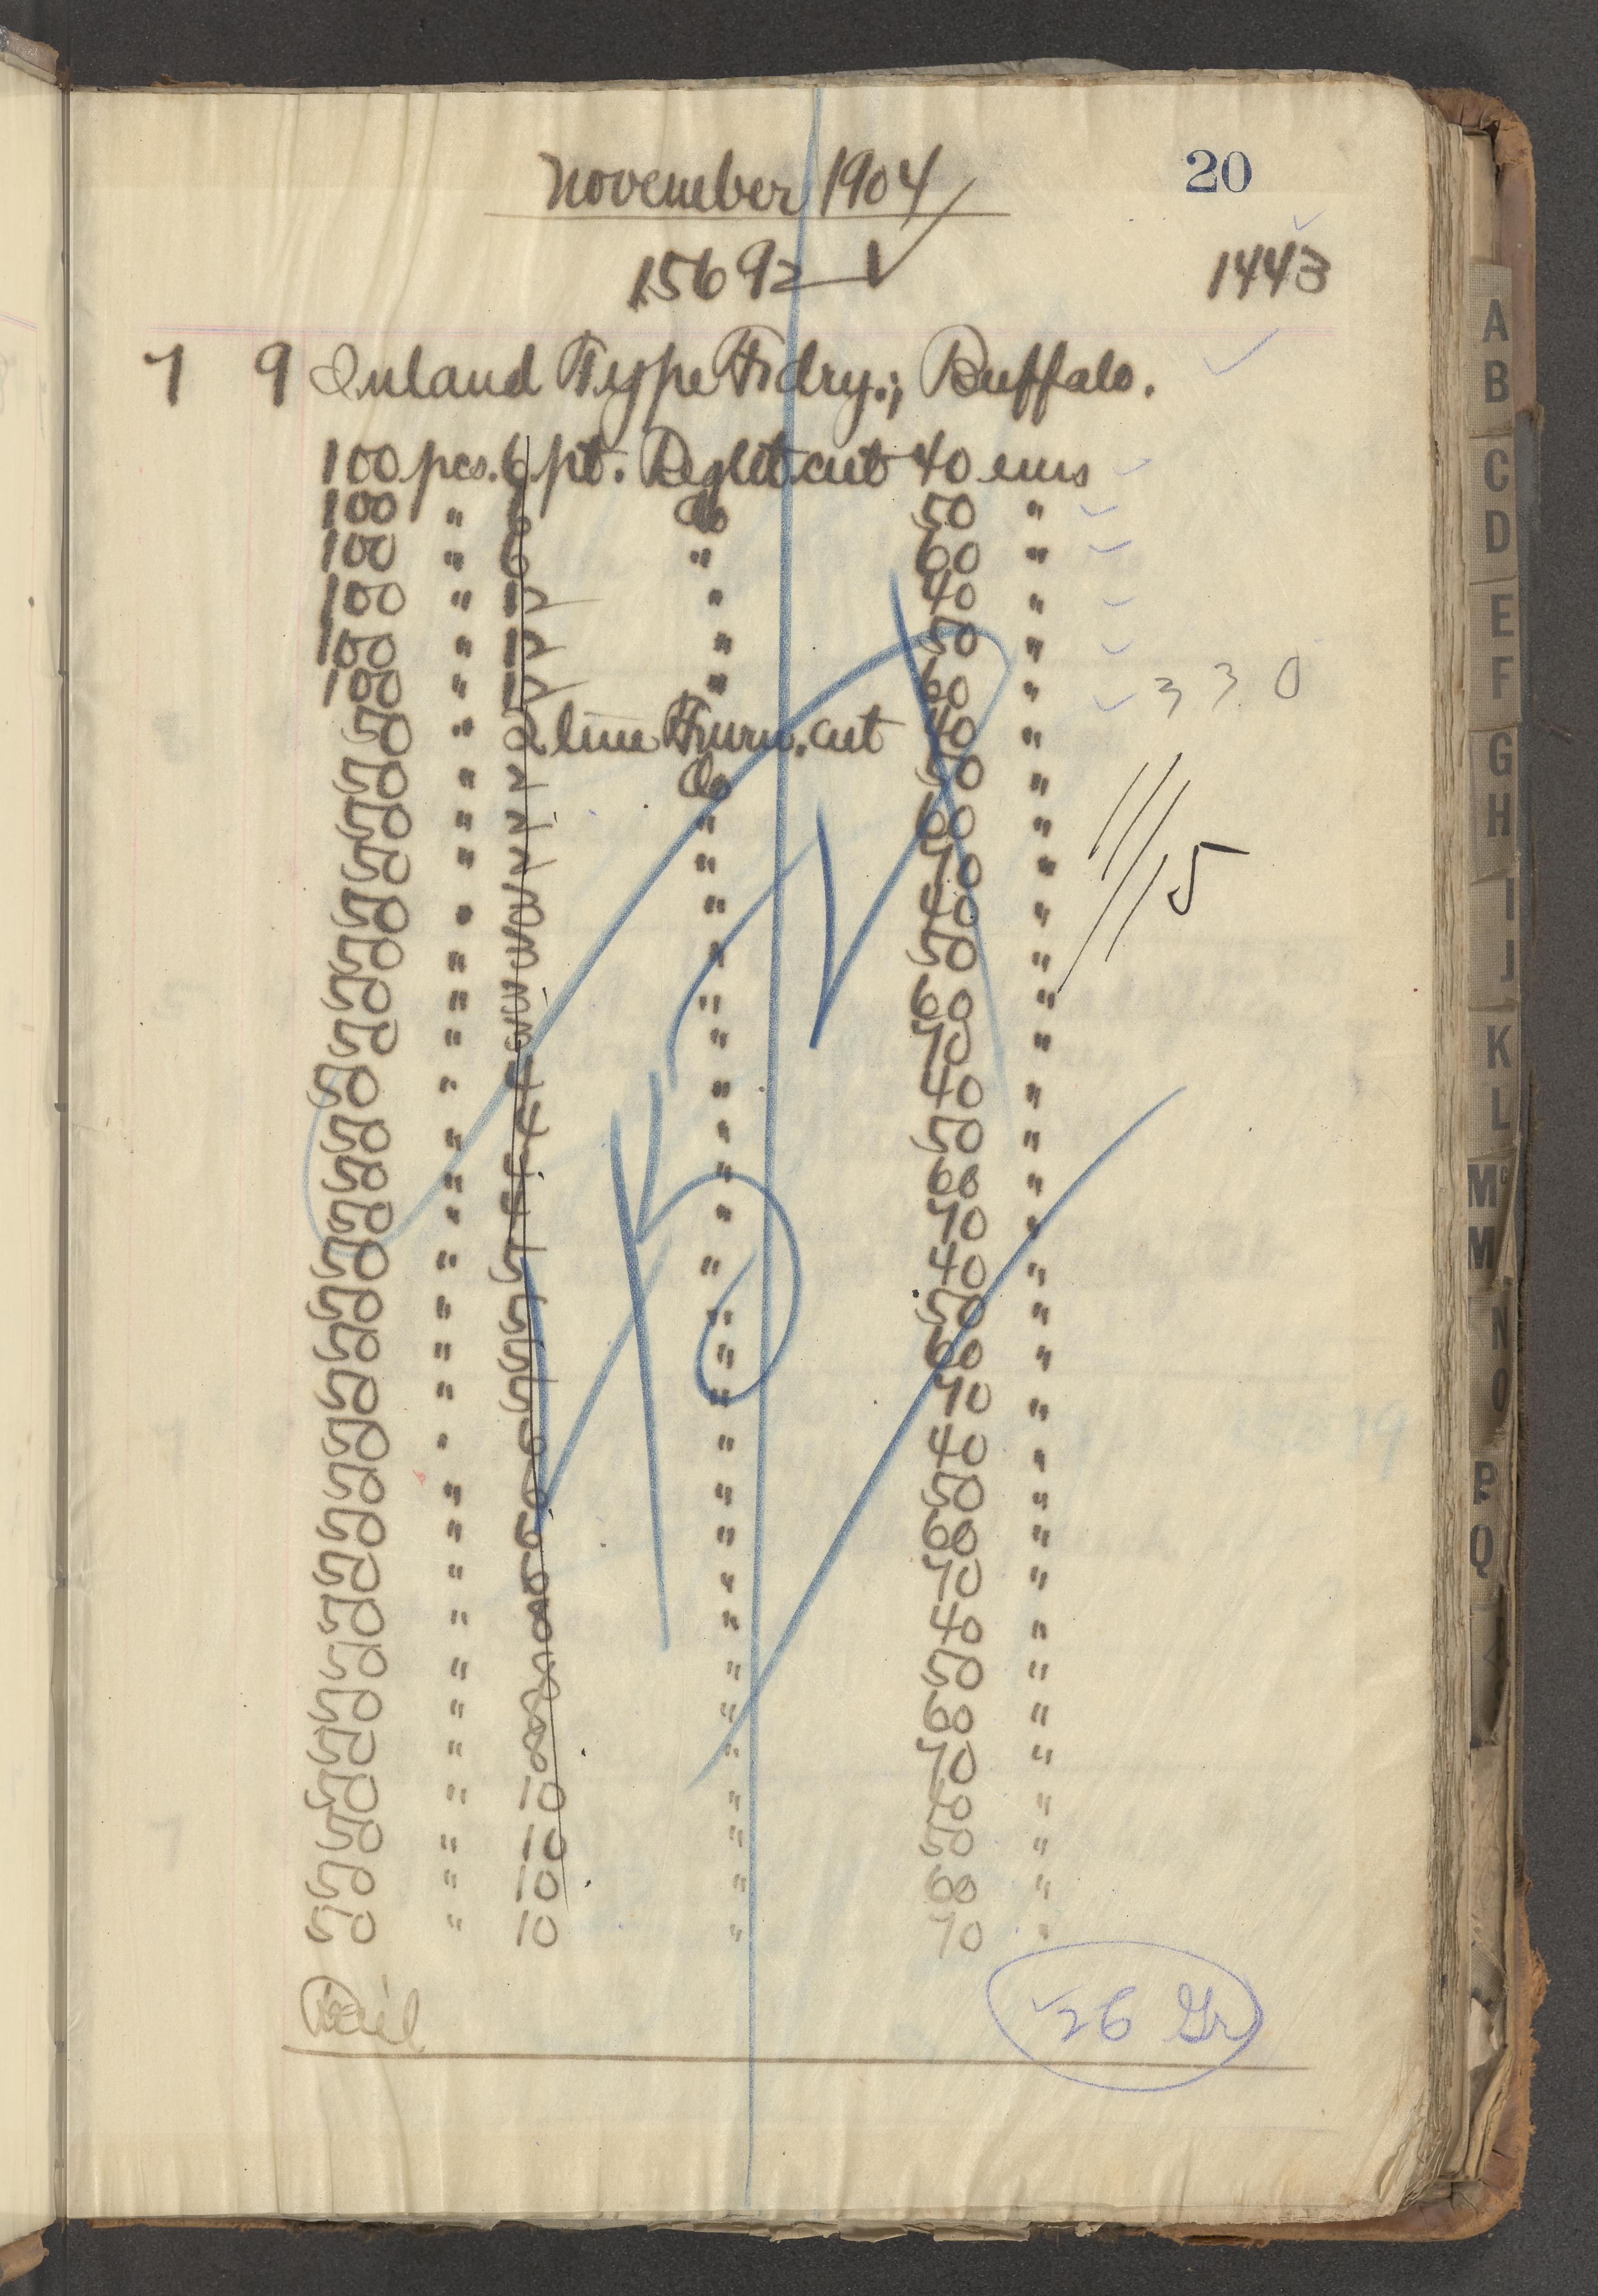 November 1904 20
15692 1443
7 9 Inland Type Fdry., Buffalo.
100 pcs. 6 pt. Reglet cut 40 ems
100 " 6 do 50 "
100 " 6 " 60 "
100 " 12 " 40 "
100 " 12 " 50 "
100 " 12 " 60 " 3 30
50 " 2 line Furn. cut 40 "
50 " 2 do 50 "
50 " 2 " 60 "
50 " 2 " 70 " 15
50 " 3 " 40 "
50 " 3 " 50 "
50 " 3 " 60 "
50 " 3 " 70 "
50 " 4 " 40 "
50 " 4 " 50 "
50 " 4 " 60 "
50 " 4 " 70 "
50 " 5 " 40 "
50 " 5 " 50 "
50 " 5 " 60 "
50 " 5 " 70 "
50 " 6 " 40 "
50 " 6 " 50 "
50 " 6 " 60 "
50 " 6 " 70 "
50 " 8 " 40 "
50 " 8 " 50 "
50 " 8 " 60 "
50 " 8 " 70 "
50 " 10 " 40 "
50 " 10 " 50 "
50 " 10 " 60 "
50 " 10 " 70 "
26 Gr
A
B
C
D
E
F
G
H
I
J
K
L
Mc
M
N
O
P
Q